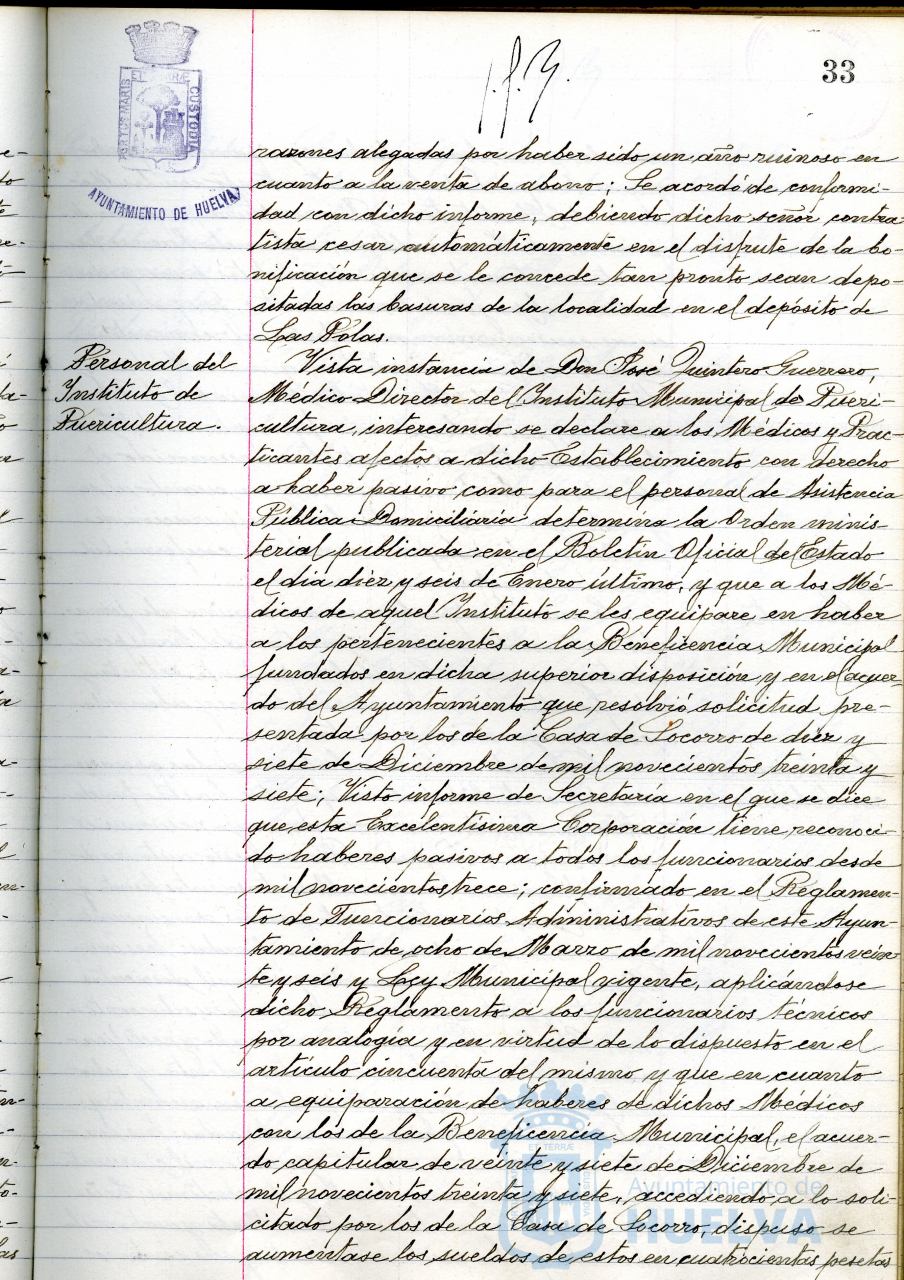 33
PORTUS MARIS ET TERRÆ CUSTODIA
AYUNTAMIENTO DE HUELVA
razones alegadas por haber sido un año ruinoso en
cuanto a la venta de abono; Se acordó de conformi-
dad con dicho informe, debiendo dicho señor contra-
tista cesar automáticamente en el disfrute de la bo-
nificación que se le concede tan pronto sean depo-
sitadas las basuras de la localidad en el depósito de
Las Polas.
Personal del
Instituto de
Puericultura.
Vista instancia de Don José Quintero Guerrero,
Médico Director del Instituto Municipal de Pueri-
cultura, interesando se declare a los Médicos y Prac-
ticantes afectos a dicho Establecimiento con derecho
a haber pasivo como para el personal de Asistencia
Pública Domiciliaria determina la Orden minis-
terial publicada en el Boletín Oficial del Estado
el día diez y seis de Enero último, y que a los Mé-
dicos de aquel Instituto se les equipare en haber
a los pertenecientes a la Beneficencia Municipal
fundados en dicha superior disposición y en el acuer-
do del Ayuntamiento que resolvió solicitud pre-
sentada por los de la Casa de Socorro de diez y
siete de Diciembre de mil novecientos treinta y
siete; Visto informe de Secretaría en el que se dice
que esta Excelentísima Corporación tiene reconoci-
do haberes pasivos a todos los funcionarios desde
mil novecientos trece; confirmado en el Reglamen-
to de Funcionarios Administrativos de este Ayun-
tamiento de ocho de Marzo de mil novecientos vein-
te y seis y Ley Municipal vigente, aplicándose
dicho Reglamento a los funcionarios técnicos
por analogía y en virtud de lo dispuesto en el
artículo cincuenta del mismo y que en cuanto
a equiparación de haberes de dichos Médicos
con los de la Beneficencia Municipal, el acuer-
do capitular de veinte y siete de Diciembre de
mil novecientos treinta y siete, accediendo a lo soli-
citado por los de la Casa de Socorro, dispuso se
aumentase los sueldos de estos en cuatrocientas pesetas
Ayuntamiento de
HUELVA